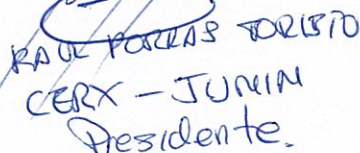 RAUL PORRAS TORIBIO
CERX - JUNIN
Presidente.